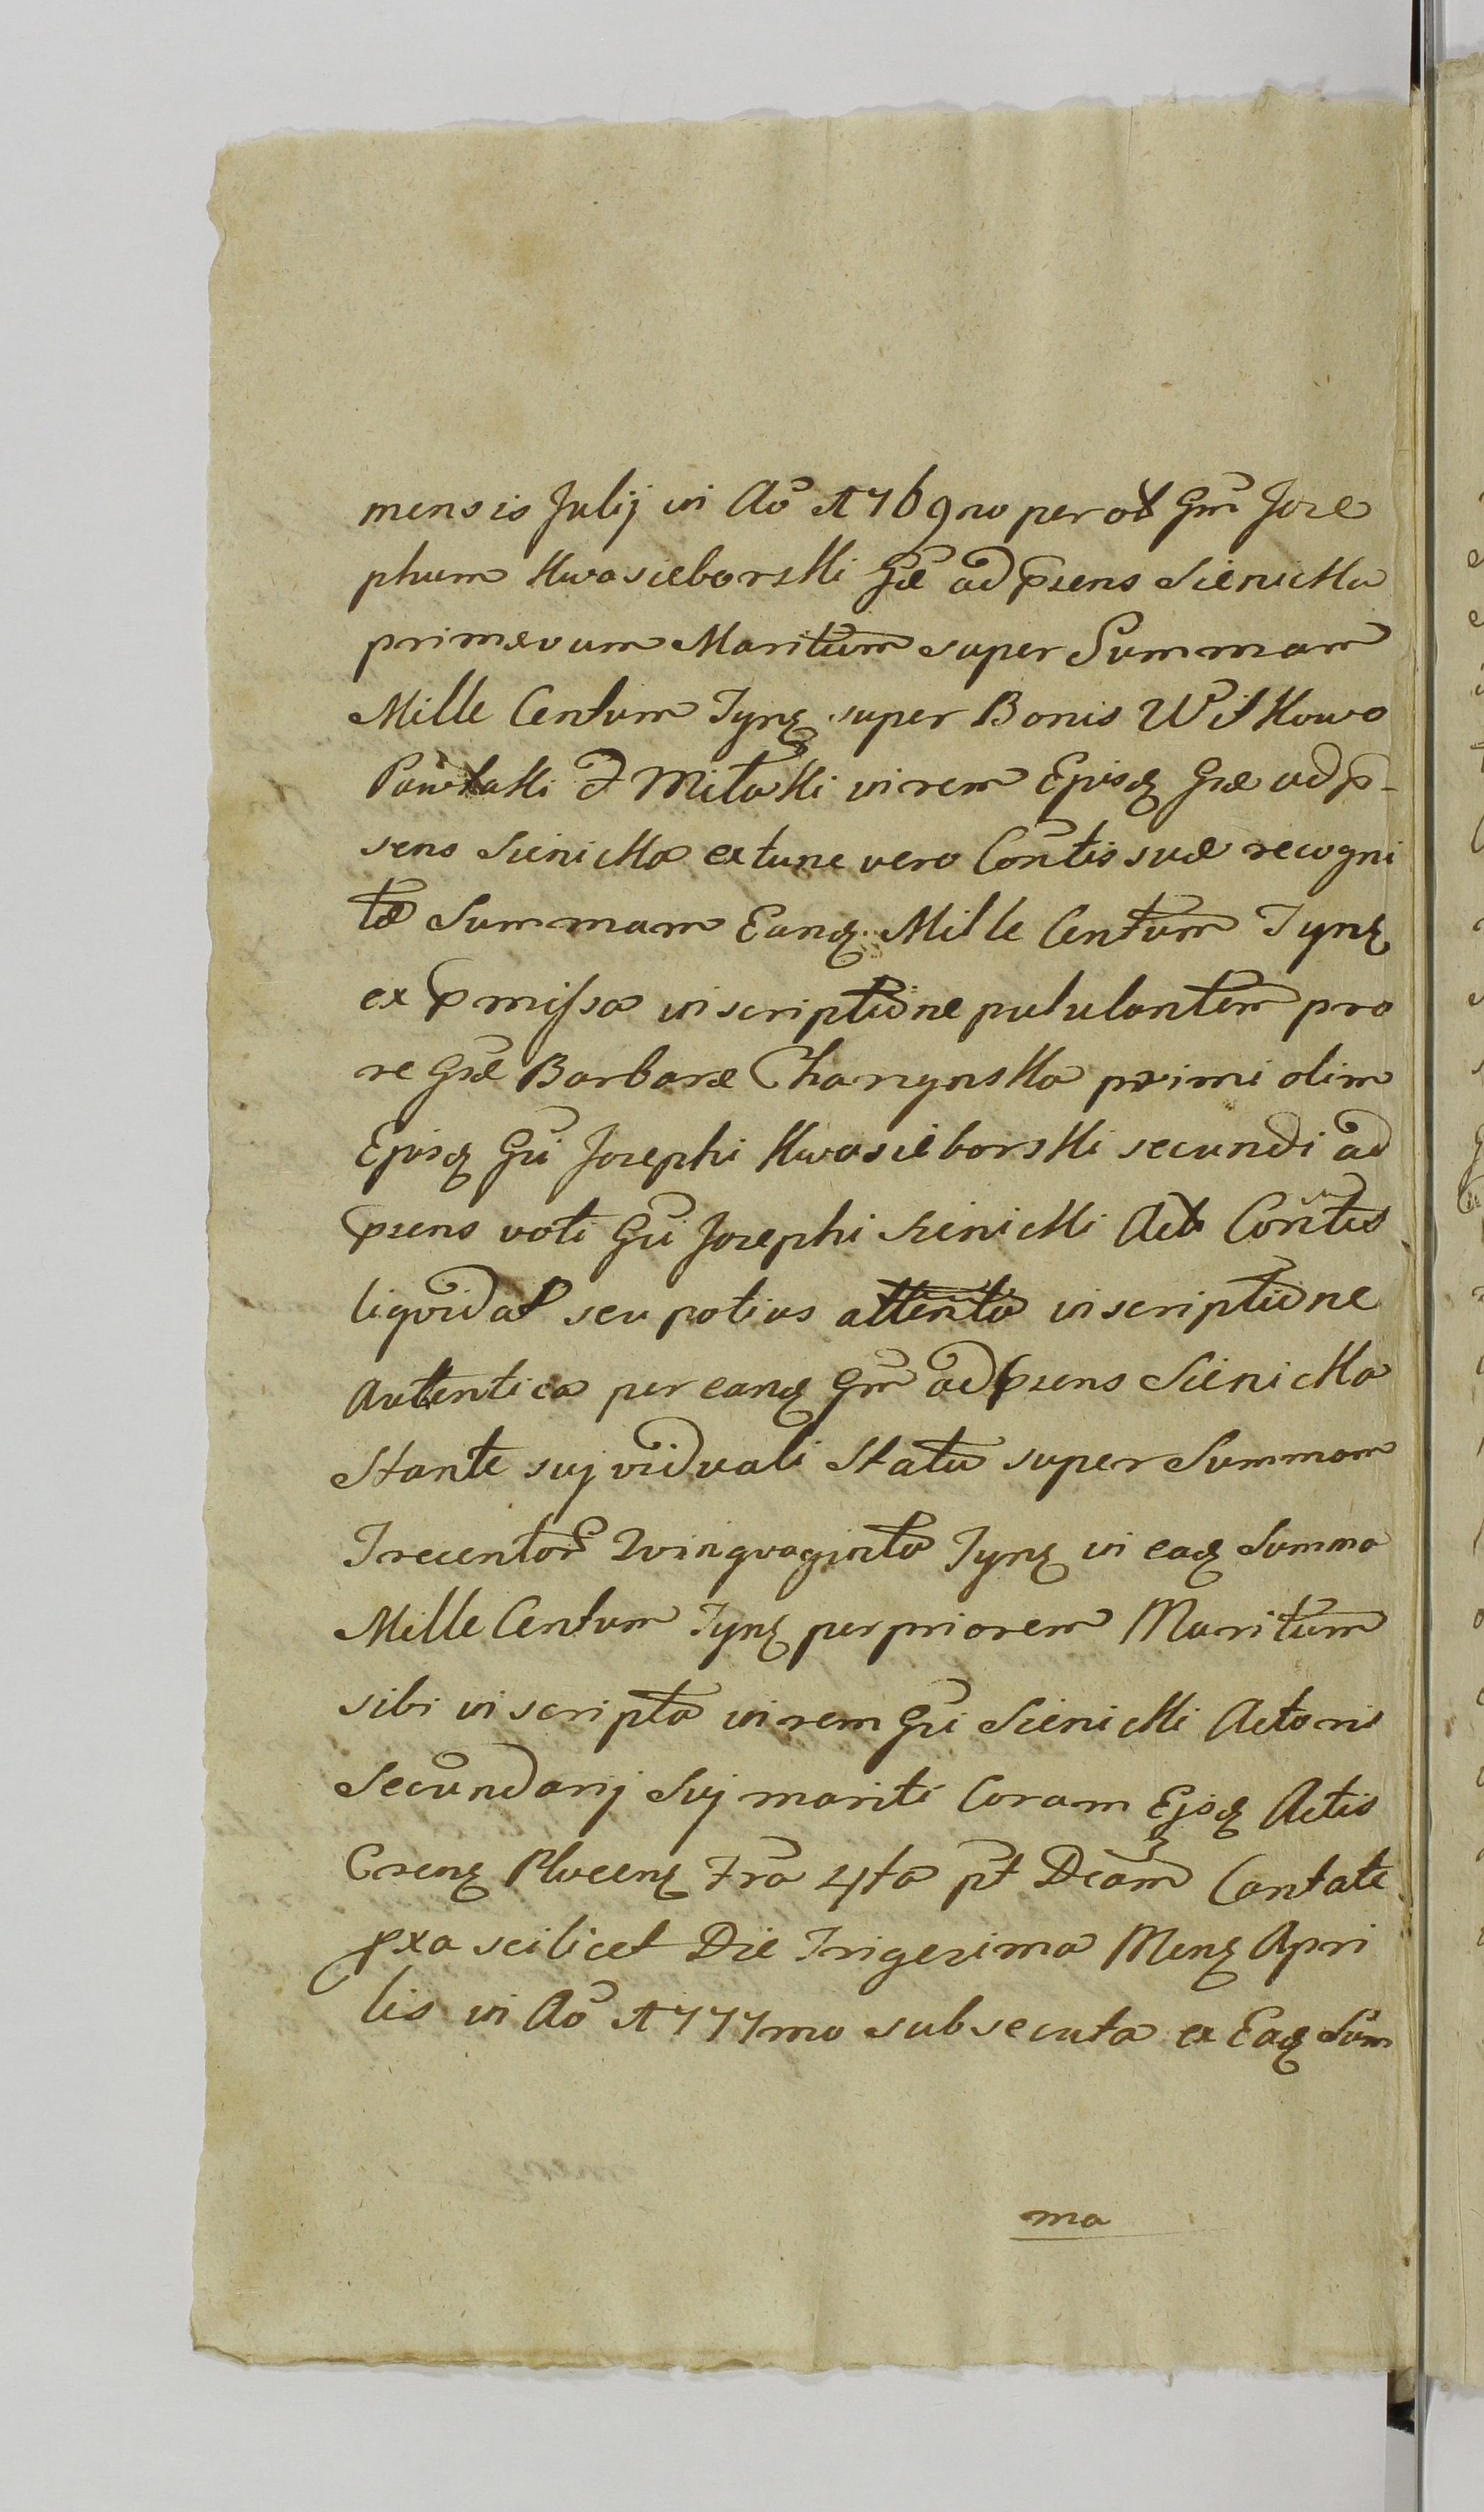 mensis Julij in Aō 1769no per ol Gm̄ Jose
phum Kwasieborski Gǣ ad p̄sens Sienicka
primævum Maritum super Summam
Mille Centum Tynʒ super Bonis Witkowo
Pawłaki & Mitaki in rem Ejusđ Gsæ ad p̄-
sens Sienicka extunc vero Con̄tis suæ recogni
tæ Summam Eanđ Mille Centum Tynʒ
ex p̄missa inscriptione pululantem pro
re Gsæ Barbaræ Charzynska primi olim
Ejusđ Gsi Josephi Kwasieborski secundi ad
p̄sens voti Gsi Josephi Sienicki Act Con̄tis
liqvidat seu potius attenta inscriptione
Autentica per eanđ Gm̄ ad p̄sens Sienicka
Stante suj viduali Statu super Summam
Trecentor Qvinqvaginta Tynʒ in eađ Summa
Mille Centum Tynʒ per priorem Maritum
sibi inscripta in rem Gsi Sienicki Actoris
Secundarij Suj mariti Coram Ejsđ Actis
Crenʒ Plocenʒ Fr̄a 4ta pt̄ Dc̄am Cantate
pxa scilicet Die Trigesima Menʒ Apri
lis in Aō 1777mo subsecuta ex Eađ Sum
ma